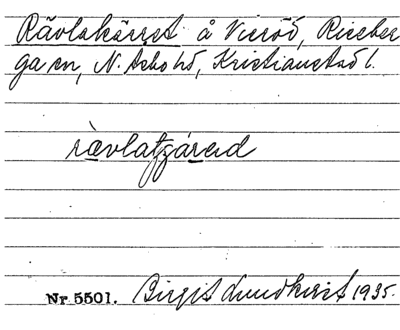 Rävlakärret å Vicröd, Riseber
ga sn, N. Åsbo hd, Kristianstad l.
rävlatjárəd
Nr 5501. Birgit Lundkvist 1935.